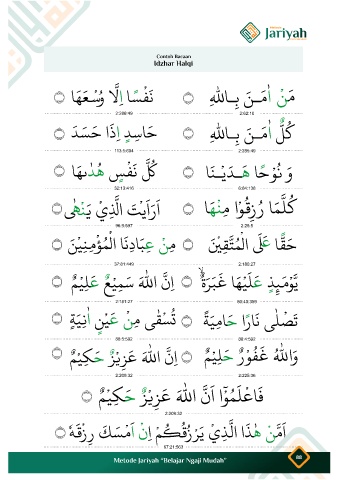 Jariyah
Contoh Bacaan
Idzhar Halqi
مَنْ اٰمَـنَ بِـاللهِ ۝ نَفْسًا اِلَّا وُسْعَهَا ۝
2:62:10 2:286:49
كُلٌّ اٰمَـنَ بِـاللهِ ۝ حَاسِدٍ اِذَا حَسَدَ ۝
2:285:49 113:5:604
وَ نُوْحًا هَـدَيْـنَـا ۝ كُلَّ نَفْسٍ هُدٰىهَا ۝
6:84:138 32:13:416
كُلَّمَا رُزِقُوْا مِنْهَا ۝ اَرَاَيْتَ الَّذِيْ يَنْهٰى ۝
2:25:5 96:9:597
حَقًّا عَلَى الْمُتَّقِيْنَ ۝ مِنْ عِبَادِنَا الْمُؤْمِنِيْنَ ۝
2:180:27 37:81:449
يَّوْمَىِٕذٍ عَلَيْهَا غَبَرَةٌ ۝ اِنَّ اللهَ سَمِيْعٌ عَلِيْمٌ ۝
80:40:585 2:181:27
تَصْلٰى نَارًا حَامِيَةً ۝ تُسْقٰى مِنْ عَيْنٍ اٰنِيَةٍ ۝
88:4:592 88:5:592
وَاللهُ غَفُوْرٌ حَلِيْمٌ ۝ اِنَّ اللهَ عَزِيْزٌ حَكِيْمٌ ۝
2:225:36 2:209:32
فَاعْلَمُوْٓا اَنَّ اللهَ عَزِيْزٌ حَكِيْمٌ ۝
2:209:32
اَمَّنْ هٰذَا الَّذِيْ يَرْزُقُكُمْ اِنْ اَمْسَكَ رِزْقَهٗ ۝
67:21:563
Metode Jariyah "Belajar Ngaji Mudah"
88